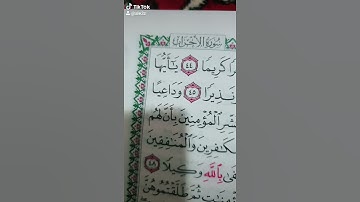 TikTok
سورة الأحزاب
كَرِيمًا ٤٤ يَٰٓأَيُّهَا
وَنَذِيرًا ٤٥ وَدَاعِيًا
وَبَشِّرِ ٱلْمُؤْمِنِينَ بِأَنَّ لَهُم
ٱلْكَٰفِرِينَ وَٱلْمُنَٰفِقِينَ
وَكَفَىٰ بِٱللَّهِ وَكِيلًا ٤٨
ثُمَّ طَلَّقْتُمُوهُنَّ